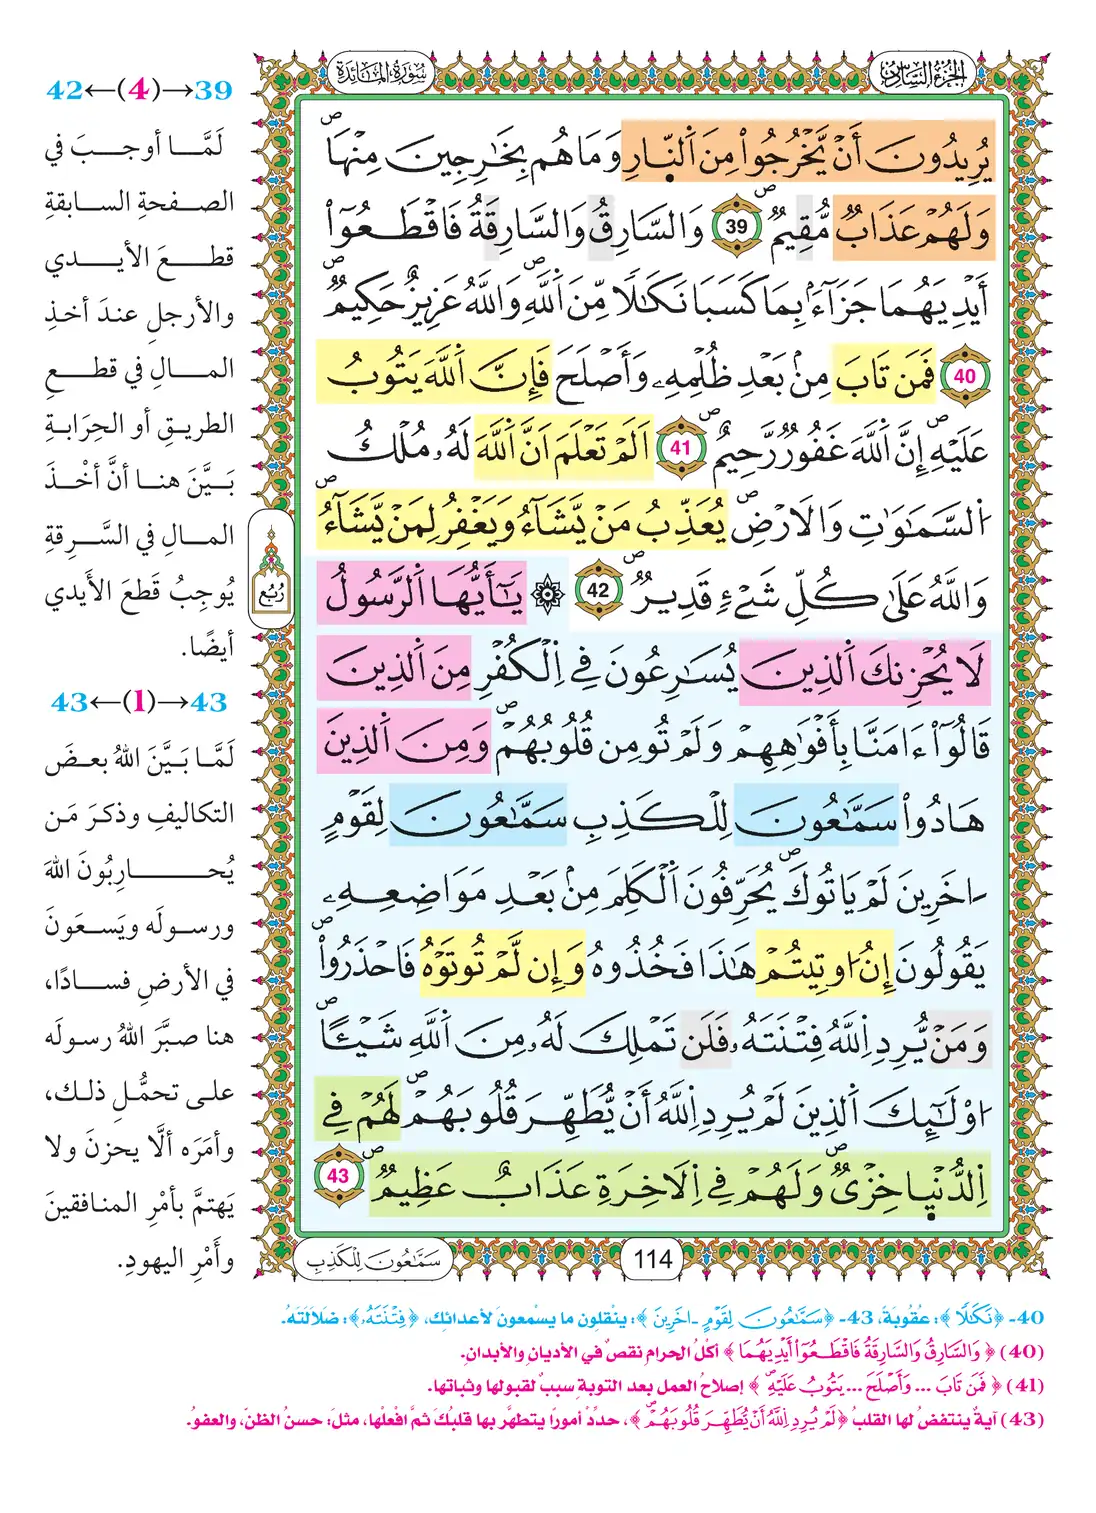 الجزء السادس
سورة المائدة
يُرِيدُونَ أَنْ يَّخْرُجُوا۟ مِنَ اَ۬لنّ۪ارِ وَمَا هُم بِخَٰرِجِينَ مِنْهَاۖ
وَلَهُمْ عَذَابٌ مُّقِيمٌۖ 39 وَالسَّارِقُ وَالسَّارِقَةُ فَاقْطَعُوٓا۟
أَيْدِيَهُمَا جَزَآءَۢ بِمَا كَسَبَا نَكَٰلٗا مِّنَ اَ۬للَّهِۖ وَاللَّهُ عَزِيزٌ حَكِيمٞۖ
40 فَمَن تَابَ مِنۢ بَعْدِ ظُلْمِهِۦ وَأَصْلَحَ فَإِنَّ اَ۬للَّهَ يَتُوبُ
عَلَيْهِۖ إِنَّ اَ۬للَّهَ غَفُورٞ رَّحِيمٌۖ 41 اَلَمْ تَعْلَمَ اَنَّ اَ۬للَّهَ لَهُۥ مُلْكُ
اُ۬لسَّمَٰوَٰتِ وَالَارْضِۖ يُعَذِّبُ مَنْ يَّشَآءُ وَيَغْفِرُ لِمَنْ يَّشَآءُۖ
وَاللَّهُ عَلَىٰ كُلِّ شَےْءٖ قَدِيرٞۖ 42 ۞ يَٰٓأَيُّهَا اَ۬لرَّسُولُ
لَا يُحْزِنكَ اَ۬لذِينَ يُسَٰرِعُونَ فِے اِ۬لْكُفْرِ مِنَ اَ۬لذِينَ
قَالُوٓا۟ ءَامَنَّا بِأَفْوَٰهِهِمْ وَلَمْ تُومِن قُلُوبُهُمْۖ وَمِنَ اَ۬لذِينَ
هَادُوا۟ سَمَّٰعُونَ لِلْكَذِبِ سَمَّٰعُونَ لِقَوْمٍ
اٰخَرِينَ لَمْ يَاتُوكَۖ يُحَرِّفُونَ اَ۬لْكَلِمَ مِنۢ بَعْدِ مَوَاضِعِهِۦ
يَقُولُونَ إِنُ ا۟وتِيتُمْ هَٰذَا فَخُذُوهُ وَإِن لَّمْ تُوتَوْهُ فَاحْذَرُوا۟ۖ
وَمَنْ يُّرِدِ اِ۬للَّهُ فِتْنَتَهُۥ فَلَن تَمْلِكَ لَهُۥ مِنَ اَ۬للَّهِ شَيْـٔاًۖ
ا۟وْلَٰٓئِكَ اَ۬لذِينَ لَمْ يُرِدِ اِ۬للَّهُ أَنْ يُّطَهِّرَ قُلُوبَهُمْۖ لَهُمْ فِے
اِ۬لدُّنْي۪ا خِزْيٞۖ وَلَهُمْ فِے اِ۬لَاخِرَةِ عَذَابٌ عَظِيمٞۖ 43
رُبُع
سَمَّٰعُونَ لِلْكَذِبِ
114
39→(4)←42
لَمَّا أوجبَ في
الصفحةِ السابقةِ
قطعَ الأيدي
والأرجلِ عندَ أخذِ
المالِ في قطعِ
الطريقِ أو الحِرَابةِ
بَيَّنَ هنا أنَّ أخْذَ
المالِ في السَّرِقةِ
يُوجِبُ قَطعَ الأيدي
أيضًا.
43→(1)←43
لَمَّا بَيَّنَ اللهُ بعضَ
التكاليفِ وذكرَ مَن
يُحارِبُونَ اللهَ
ورسولَه ويَسعَونَ
في الأرضِ فسادًا،
هنا صبَّرَ اللهُ رسولَه
على تحمُّلِ ذلك،
وأمَرَه ألَّا يحزنَ ولا
يَهتمَّ بأمْرِ المنافقينَ
وأَمْرِ اليهودِ.
40- ﴿نَكَٰلٗا﴾: عقُوبَةً، 43- ﴿سَمَّٰعُونَ لِقَوْمٍ اٰخَرِينَ﴾: ينْقلون ما يسْمعونَ لأعدائك، ﴿فِتْنَتَهُۥ﴾: ضلالَتَهُ.
(40) ﴿وَالسَّارِقُ وَالسَّارِقَةُ فَاقْطَعُوٓا۟ أَيْدِيَهُمَا﴾ أكلُ الحرامِ نقصٌ في الأديانِ والأبدانِ.
(41) ﴿فَمَن تَابَ ... وَأَصْلَحَ ... يَتُوبُ عَلَيْهِۖ﴾ إصلاحُ العملِ بعد التوبةِ سببٌ لقبولها وثباتها.
(43) آيةٌ ينتفضُ لها القلبُ ﴿لَمْ يُرِدِ اِ۬للَّهُ أَنْ يُّطَهِّرَ قُلُوبَهُمْۖ﴾، حدِّدْ أمورًا يتطهَّر بها قلبُكَ ثمَّ افْعلْها، مثلَ: حسنُ الظنِّ، والعفوُ.